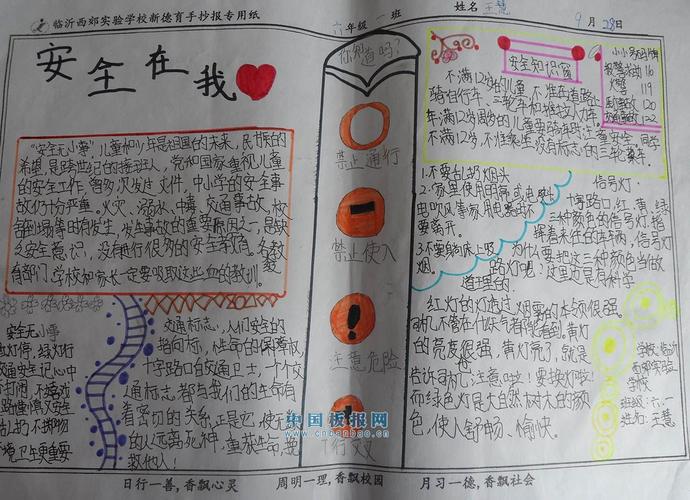 临沂西郊实验学校新德育手抄报专用纸
六年级 一班
姓名 王慧
9月28日
安全在我
你知道吗?
禁止通行
禁止使入
注意危险
"安全无小事",儿童和少年是祖国的未来,民族的
希望,是跨世纪的接班人,党和国家重视儿童
的安全工作,曾多次发过文件,中小学的安全事
故仍十分严重。火灾、溺水、中毒、交通事故、校
舍倒塌等时有发生,发生事故的重要原因之一是缺
乏安全意识,没有进行很多的安全教育。各教
育部门、学校和家长一定要吸取这些血的教训。
安全无小事
红灯停,绿灯行
交通安全记心中
交通标志,人们安全的
指向标,生命的保障权,
十字路口的交通卫士,一个个
交通标志,都与我们的生命有
着密切的关系,正是它,使无数
的人远离死神,重获生命,挽
救他人!
安全知识窗
不满12岁的儿童,不准在道路上
骑自行车、三轮车和推拉人力车。
不满12岁,不准乘坐没有标志的三轮乘车。
小小号码牌
火警 119
120
122
1.不要乱扔烟头
2.家里使用明闸或电熨斗
电吹风等家用电器时不
要离开
3.不要躺床上吸
烟。
信号灯
十字路口,红、黄、绿
三种颜色的信号灯,指
挥着来往的车辆,信号灯
为什么要这三种颜色当做
路灯呢?这里边是有科学
道理的。
红灯的灯透过烟雾的本领很强。
司机不管在什么天气都能看到,黄灯
的亮度很强,黄灯亮了,就是
告诉司机,注意啦!要换灯啦!
而绿色灯是大自然树木的颜
色,使人舒畅、愉快。
学校:临沂
西郊实验
学校
班级:六.一
姓名:王慧
中国板报网
www.cnbanbao.cn
日行一善,香飘心灵 周明一理,香飘校园 月习一德,香飘社会